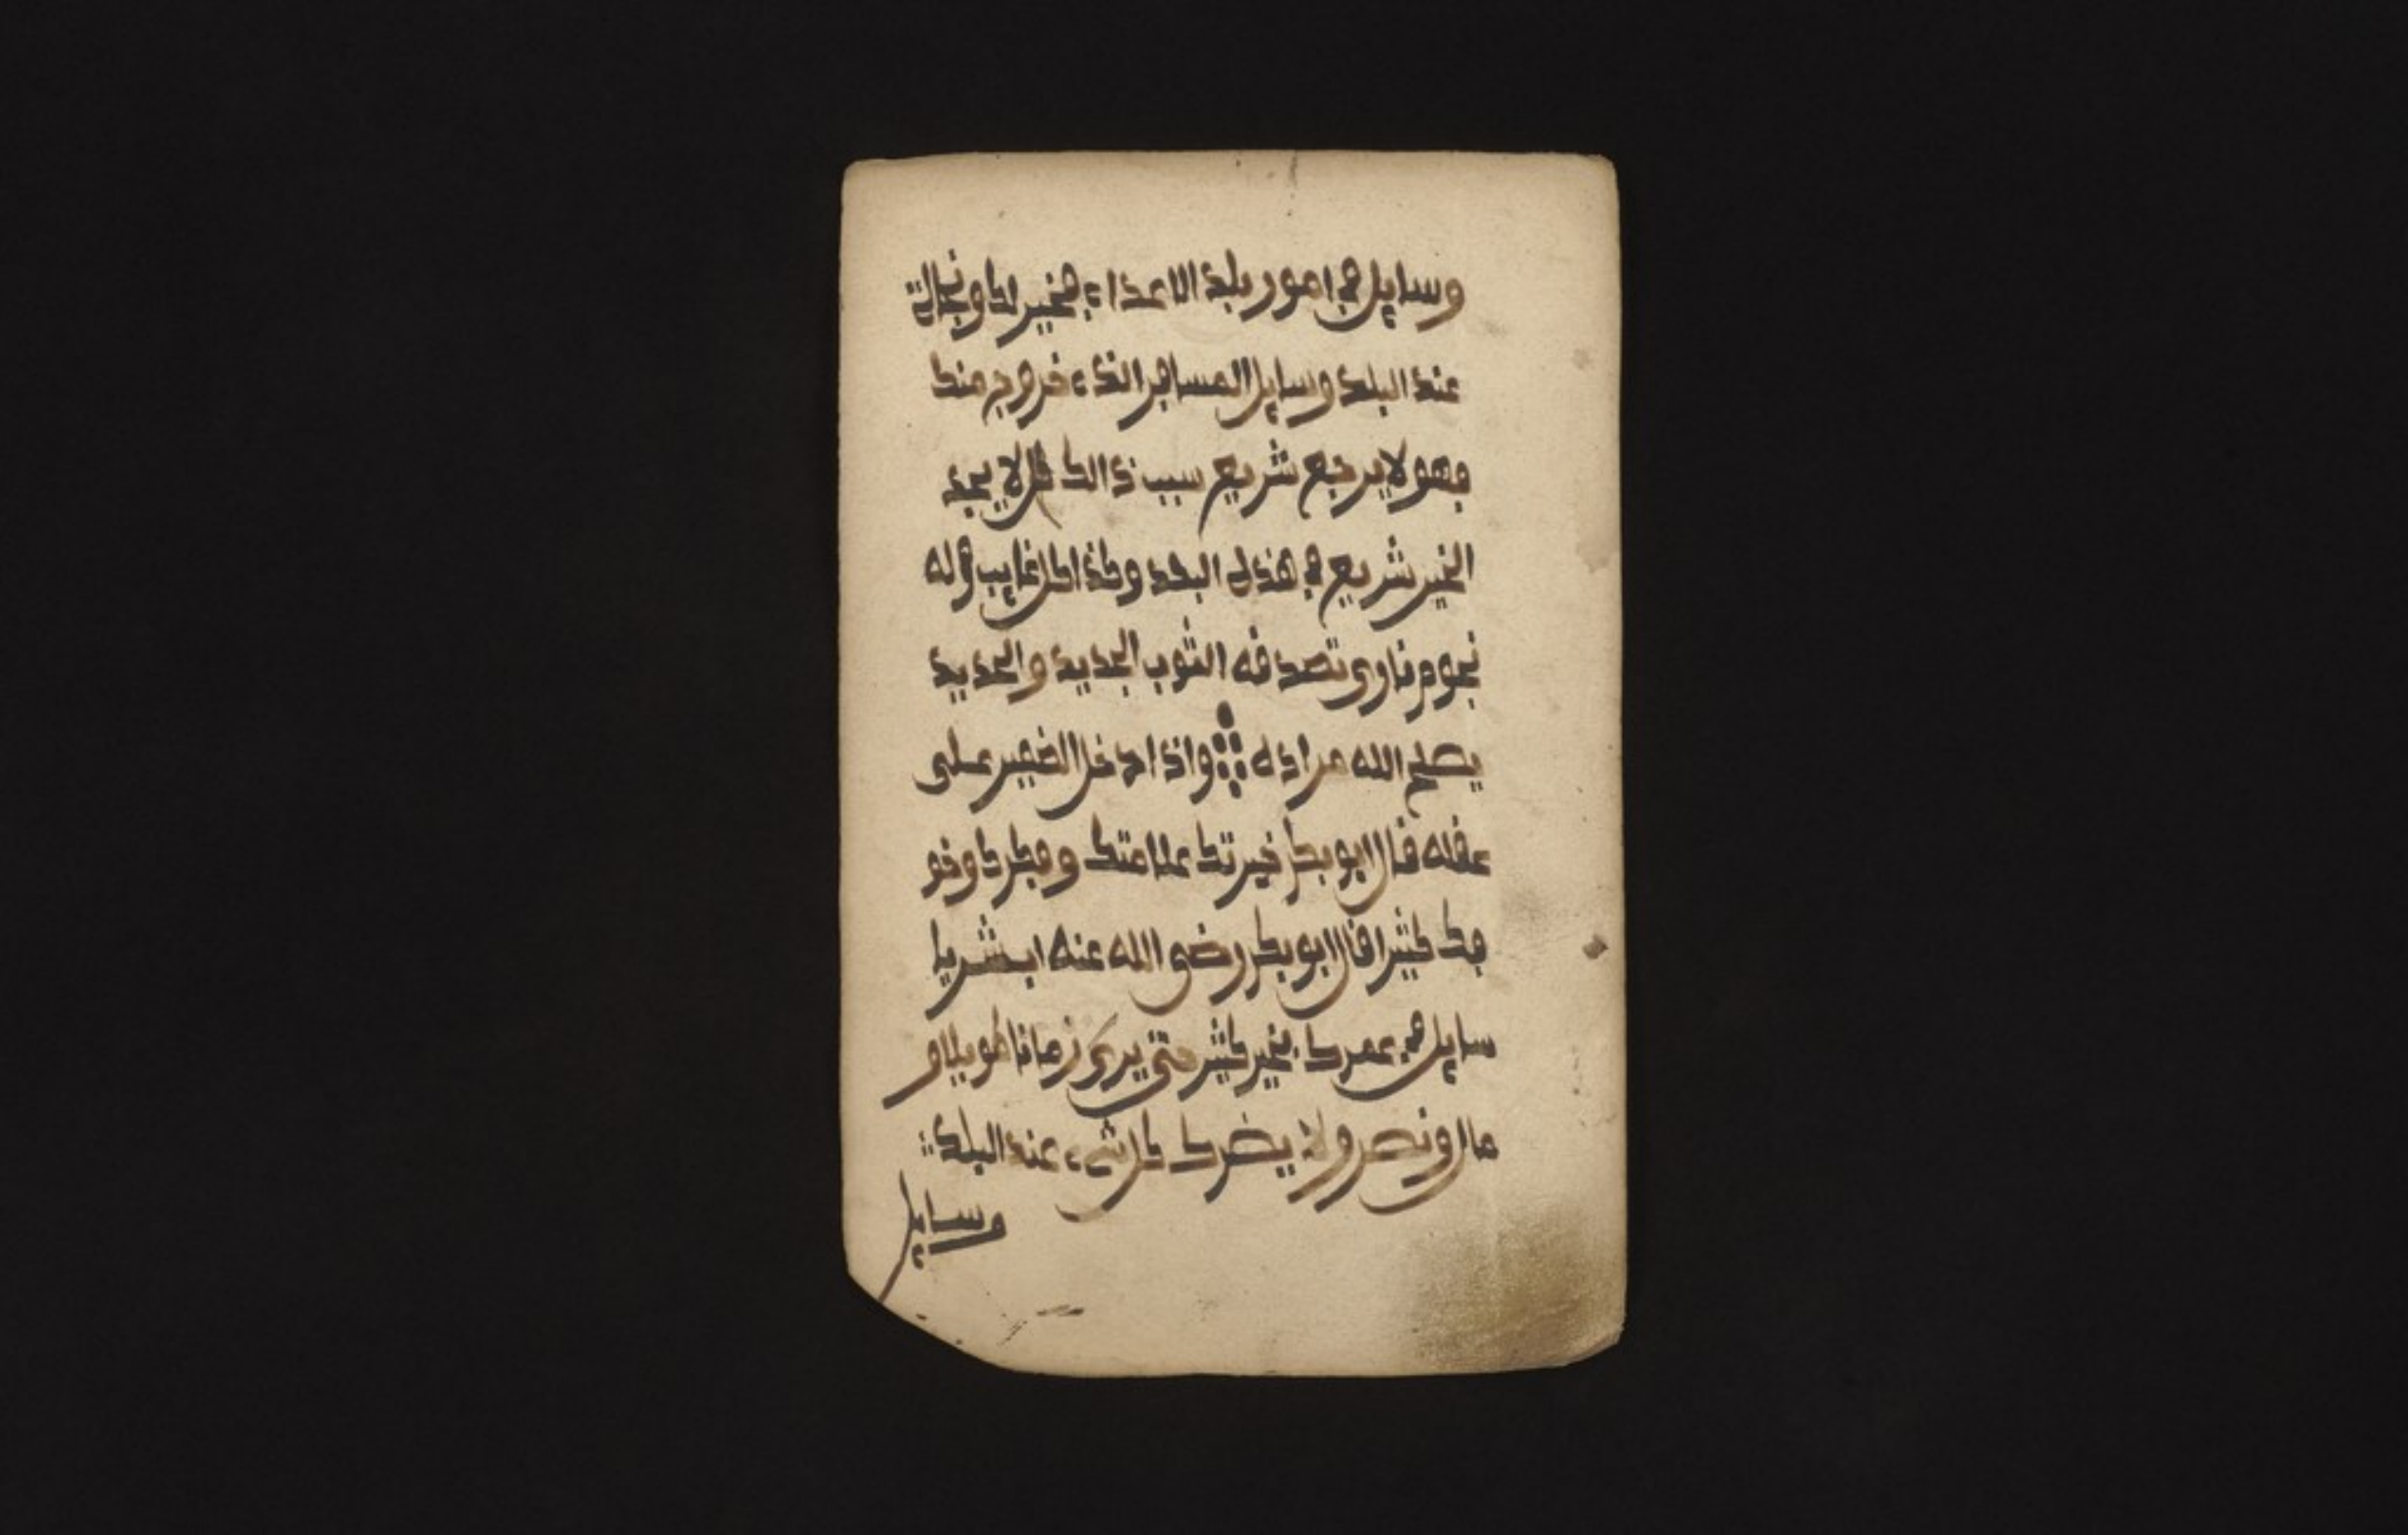 وسايل في امور بلد الاعداء فخير لك ونجالة
عند البلد وسايل المسافر الذء خروج منك
فهو لا يرجع شريع سبب ذالك قل لا يجد
الخير شريع في هذه البلد وكذا كل غايب وله
نجوم ناري تصدقه الثوب الجديد والحديد
يصلح الله مراده واذا دخل الضمير على
عقله قال ابو بكر خيرتك علامتك وفكرك وخو
فك كثيرا قال ابو بكر رضى الله عنه ابشر يا
سايل في عمرك بخير كثير حتى يرى زمانا طويلا و
مال ونصر ولا يضرك كل شء عند البلد
وسايل